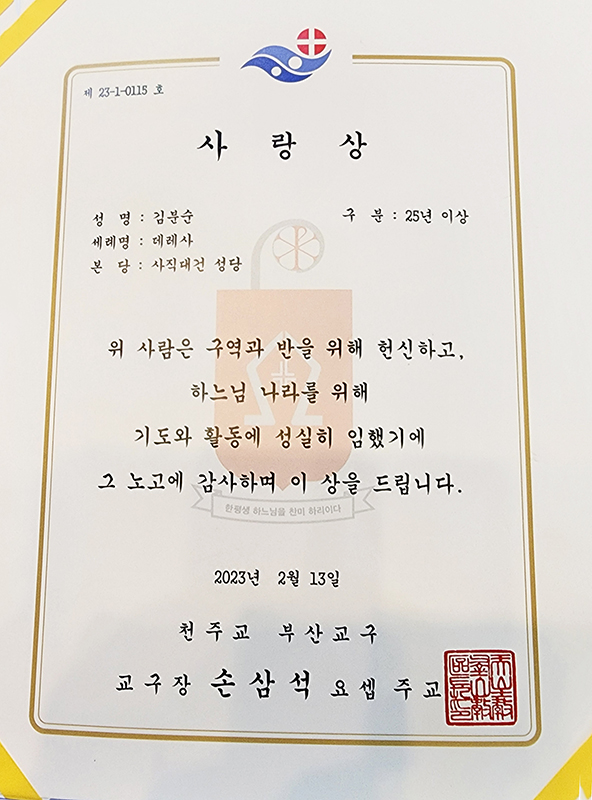 제 23-1-0115 호
사 랑 상
성 명 : 김분순
구 분 : 25년 이상
세례명 : 데레사
본 당 : 사직대건 성당
위 사람은 구역과 반을 위해 헌신하고,
하느님 나라를 위해
기도와 활동에 성실히 임했기에
그 노고에 감사하며 이 상을 드립니다.
한평생 하느님을 찬미 하리이다
2023년 2월 13일
천주교 부산교구
교구장 손삼석 요셉 주교